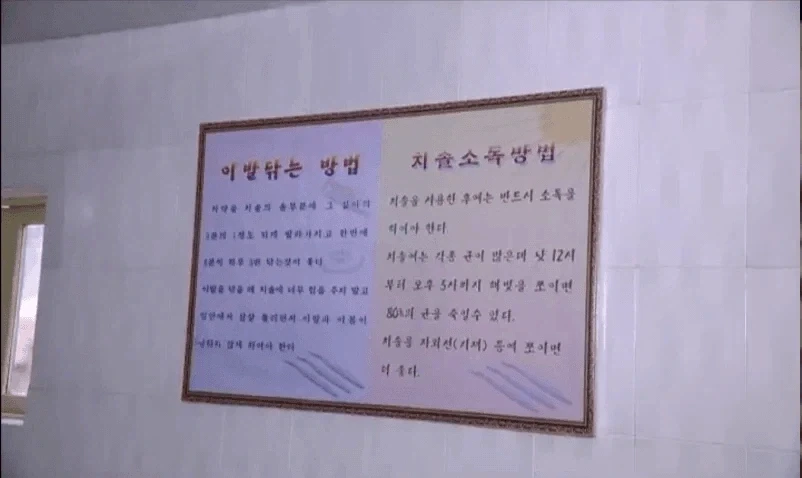 이발닦는 방법
치약을 치솔의 솔부분에 그 길이의
3분의 1정도 되게 발라가지고 한번에
3분씩 하루 3번 닦는것이 좋다
이발을 닦을 때 치솔에 너무 힘을 주지 말고
입안에서 살살 돌리면서 이발과 이몸이
않게 하여야 한다
치솔소독방법
치솔을 사용한 후에는 반드시 소독을
하여야 한다.
치솔에는 각종 균이 많은데 낮 12시
부터 오후 3시까지 해빛을 쪼이면
80%의 균을 죽일수 있다.
치솔을 자외선(기재) 등에 쪼이면
더 좋다.